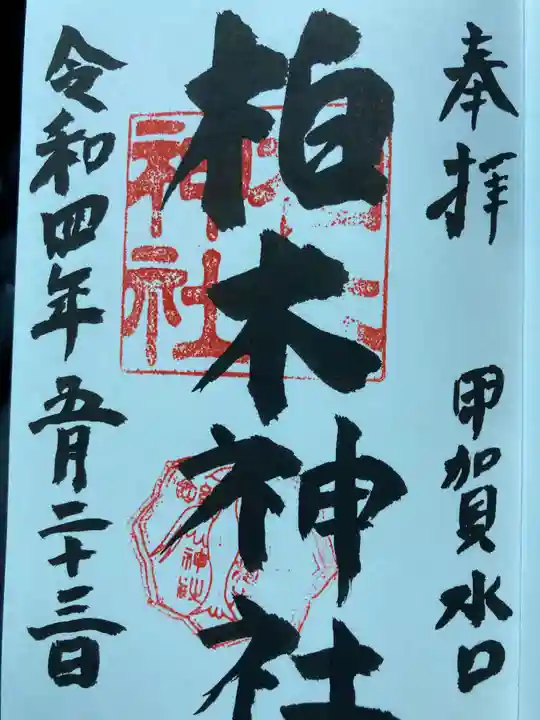 奉拝
甲賀水口
柏木神社
神社
令和四年五月二十三日